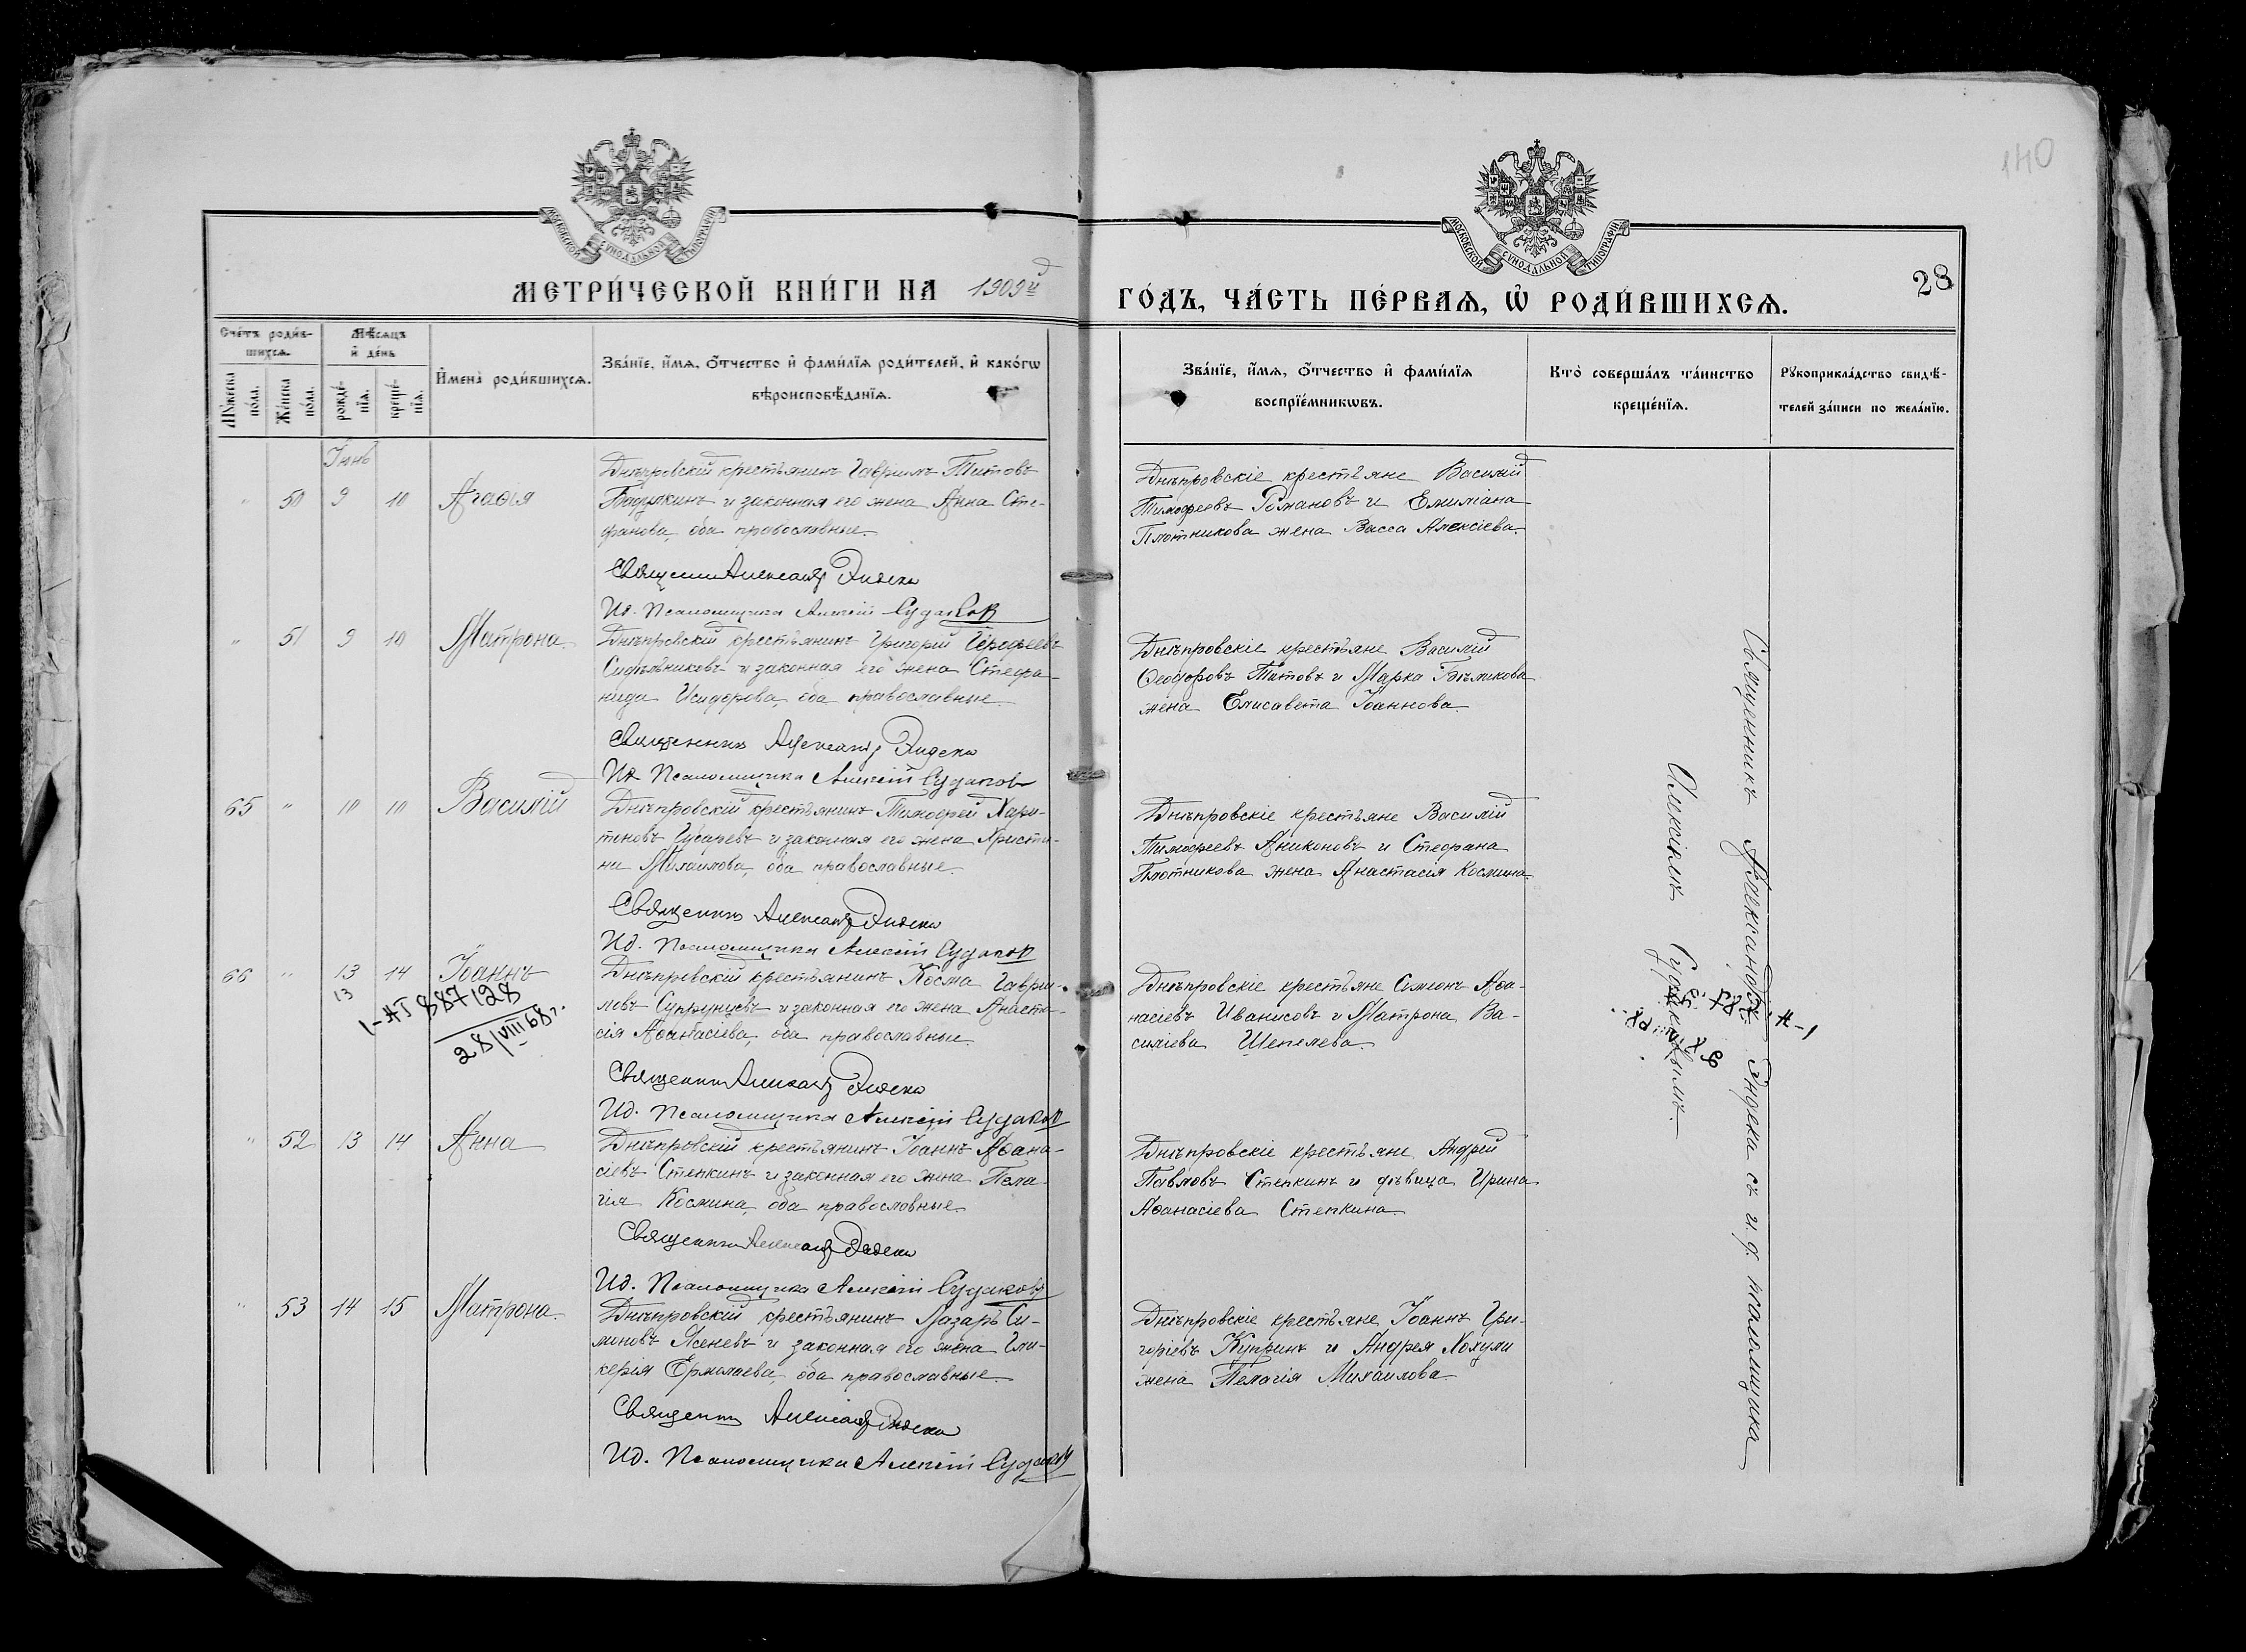 140
МОСКОВСКОЙ СѴНОДАЛЬНОЙ ТИПОГРАФІИ
МОСКОВСКОЙ СѴНОДАЛЬНОЙ ТИПОГРАФІИ
МЕТРИ́ЧЕСКОЙ КНИ́ГИ НА 1909й
ГО́ДЪ, ЧА́СТЬ ПЕ́РВАѦ, Ѡ РОДИ́ВШИХСѦ.
28
Сче́тъ роди́в-
шихсѧ.
Мѣ́сѧцъ
и҆ де́нь
Мꙋ́жеска
по́ла.
Же́нска
по́ла.
рожде́-
нїѧ.
креще́-
нїѧ.
И҆мена̀ роди́вшихсѧ.
Зва́нїе, и҆́мѧ, ѻ҆́тчество и҆ фами́лїѧ роди́телей, и҆ како́гѡ
вѣроисповѣ́данїѧ.
Зва́нїе, и҆́мѧ, ѻ҆́тчество и҆ фами́лїѧ
воспрїе́мникѡвъ.
Кто̀ соверша́лъ та́инство
креще́нїѧ.
Рꙋкоприкла́дство свидѣ́-
телей за́писи по жела́нїю.
" 50 9 10 Агаѳія
Днѣпровскій крестьянинъ Гавріилъ Титовъ
и законная его жена Анна Сте-
фанова, оба православные.
Священник Александр
Ид. Псаломщика Алексій Судаков
Днѣпровскіе крестьяне Василій
Тимофеевъ Романовъ и Емиліана
Плотникова жена Васса Алексіева.
" 51 9 10 Матрона.
Днѣпровскій крестьянинъ Григорій Іерофеевъ
Сидѣльниковъ и законная его жена Стефа-
нида Исидорова, оба православные.
Священникъ Александр
Ид. Псаломщика Алексій Судаков
Днѣпровскіе крестьяне Василій
Ѳеодоровъ Титовъ и Марка Бѣликова
жена Елисавета Іоаннова.
65 " 10 10 Василій
Днѣпровскій крестьянинъ Тимофей Хари-
тоновъ Гусаревъ и законная его жена Христи-
на Михаилова, оба православные.
Священник Александр
Ид. Псаломщика Алексій Судаков
Днѣпровскіе крестьяне Василій
Тимофеевъ Аниконовъ и Стефана
Плотникова жена Анастасія Космина.
66 " 13 14 Іоаннъ
13
1-АЯ 887128
28/VIII 68 г.
Днѣпровскій крестьянинъ Косма Гаврі-
ловъ Супрунцевъ и законная его жена Анаста-
сія Аѳанасіева, оба православные.
Священник Александр
Ид. Псаломщика Алексій Судаков
Днѣпровскіе крестьяне Симеонъ Аѳа-
насіевъ Иванисовъ и Матрона Ва-
силіева Шепелева.
" 52 13 14 Анна
Днѣпровскій крестьянинъ Іоаннъ Аѳана-
сіевъ Степкинъ и законная его жена Пела-
гія Космина, оба православные.
Священник Александр
Ид. Псаломщика Алексій Судаковъ
Днѣпровскіе крестьяне Андрей
Павловъ Степкинъ и дѣвица Ирина
Аѳанасіева Степкина.
" 53 14 15 Матрона.
Днѣпровскій крестьянинъ Лазарь Си-
моновъ Ясеневъ и законная его жена Гли-
керія Ермолаева, оба православные.
Священник Александр
Ид. Псаломщика Алексій Судаков
Днѣпровскіе крестьяне Іоаннъ Гри-
горіевъ Купринъ и Андрея Холула
жена Пелагія Михаилова.
Священникъ Александръ Эндека съ и. д. псаломщика
Алексіемъ Судаковымъ.